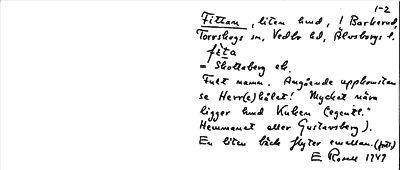 1-2
Fittan, liten hmd, i Bäckerud,
Torrskogs sn, Vedbo hd, Älvsborgs l.
fita
= Skottaberg etc.
Fult namn. Angående uppkomsten
se Herr(e)hålet! Mycket nära
ligger hmd Kuken (egentl."
Hemmanet eller Gustavsberg).
En liten bäck flyter emellan. (forts.)
E Rosell 1949